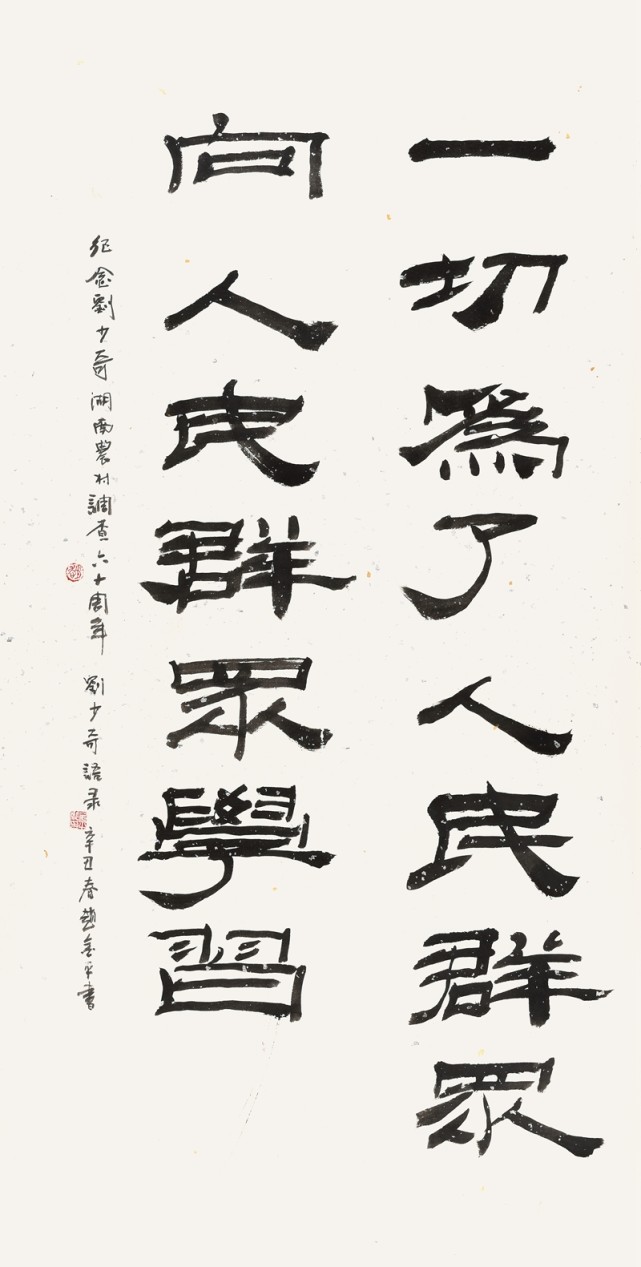 一切爲了人民群眾
向人民群眾學習
纪念劉少奇湖南農村調查六十周年 劉少奇語录 辛丑春趙金平書